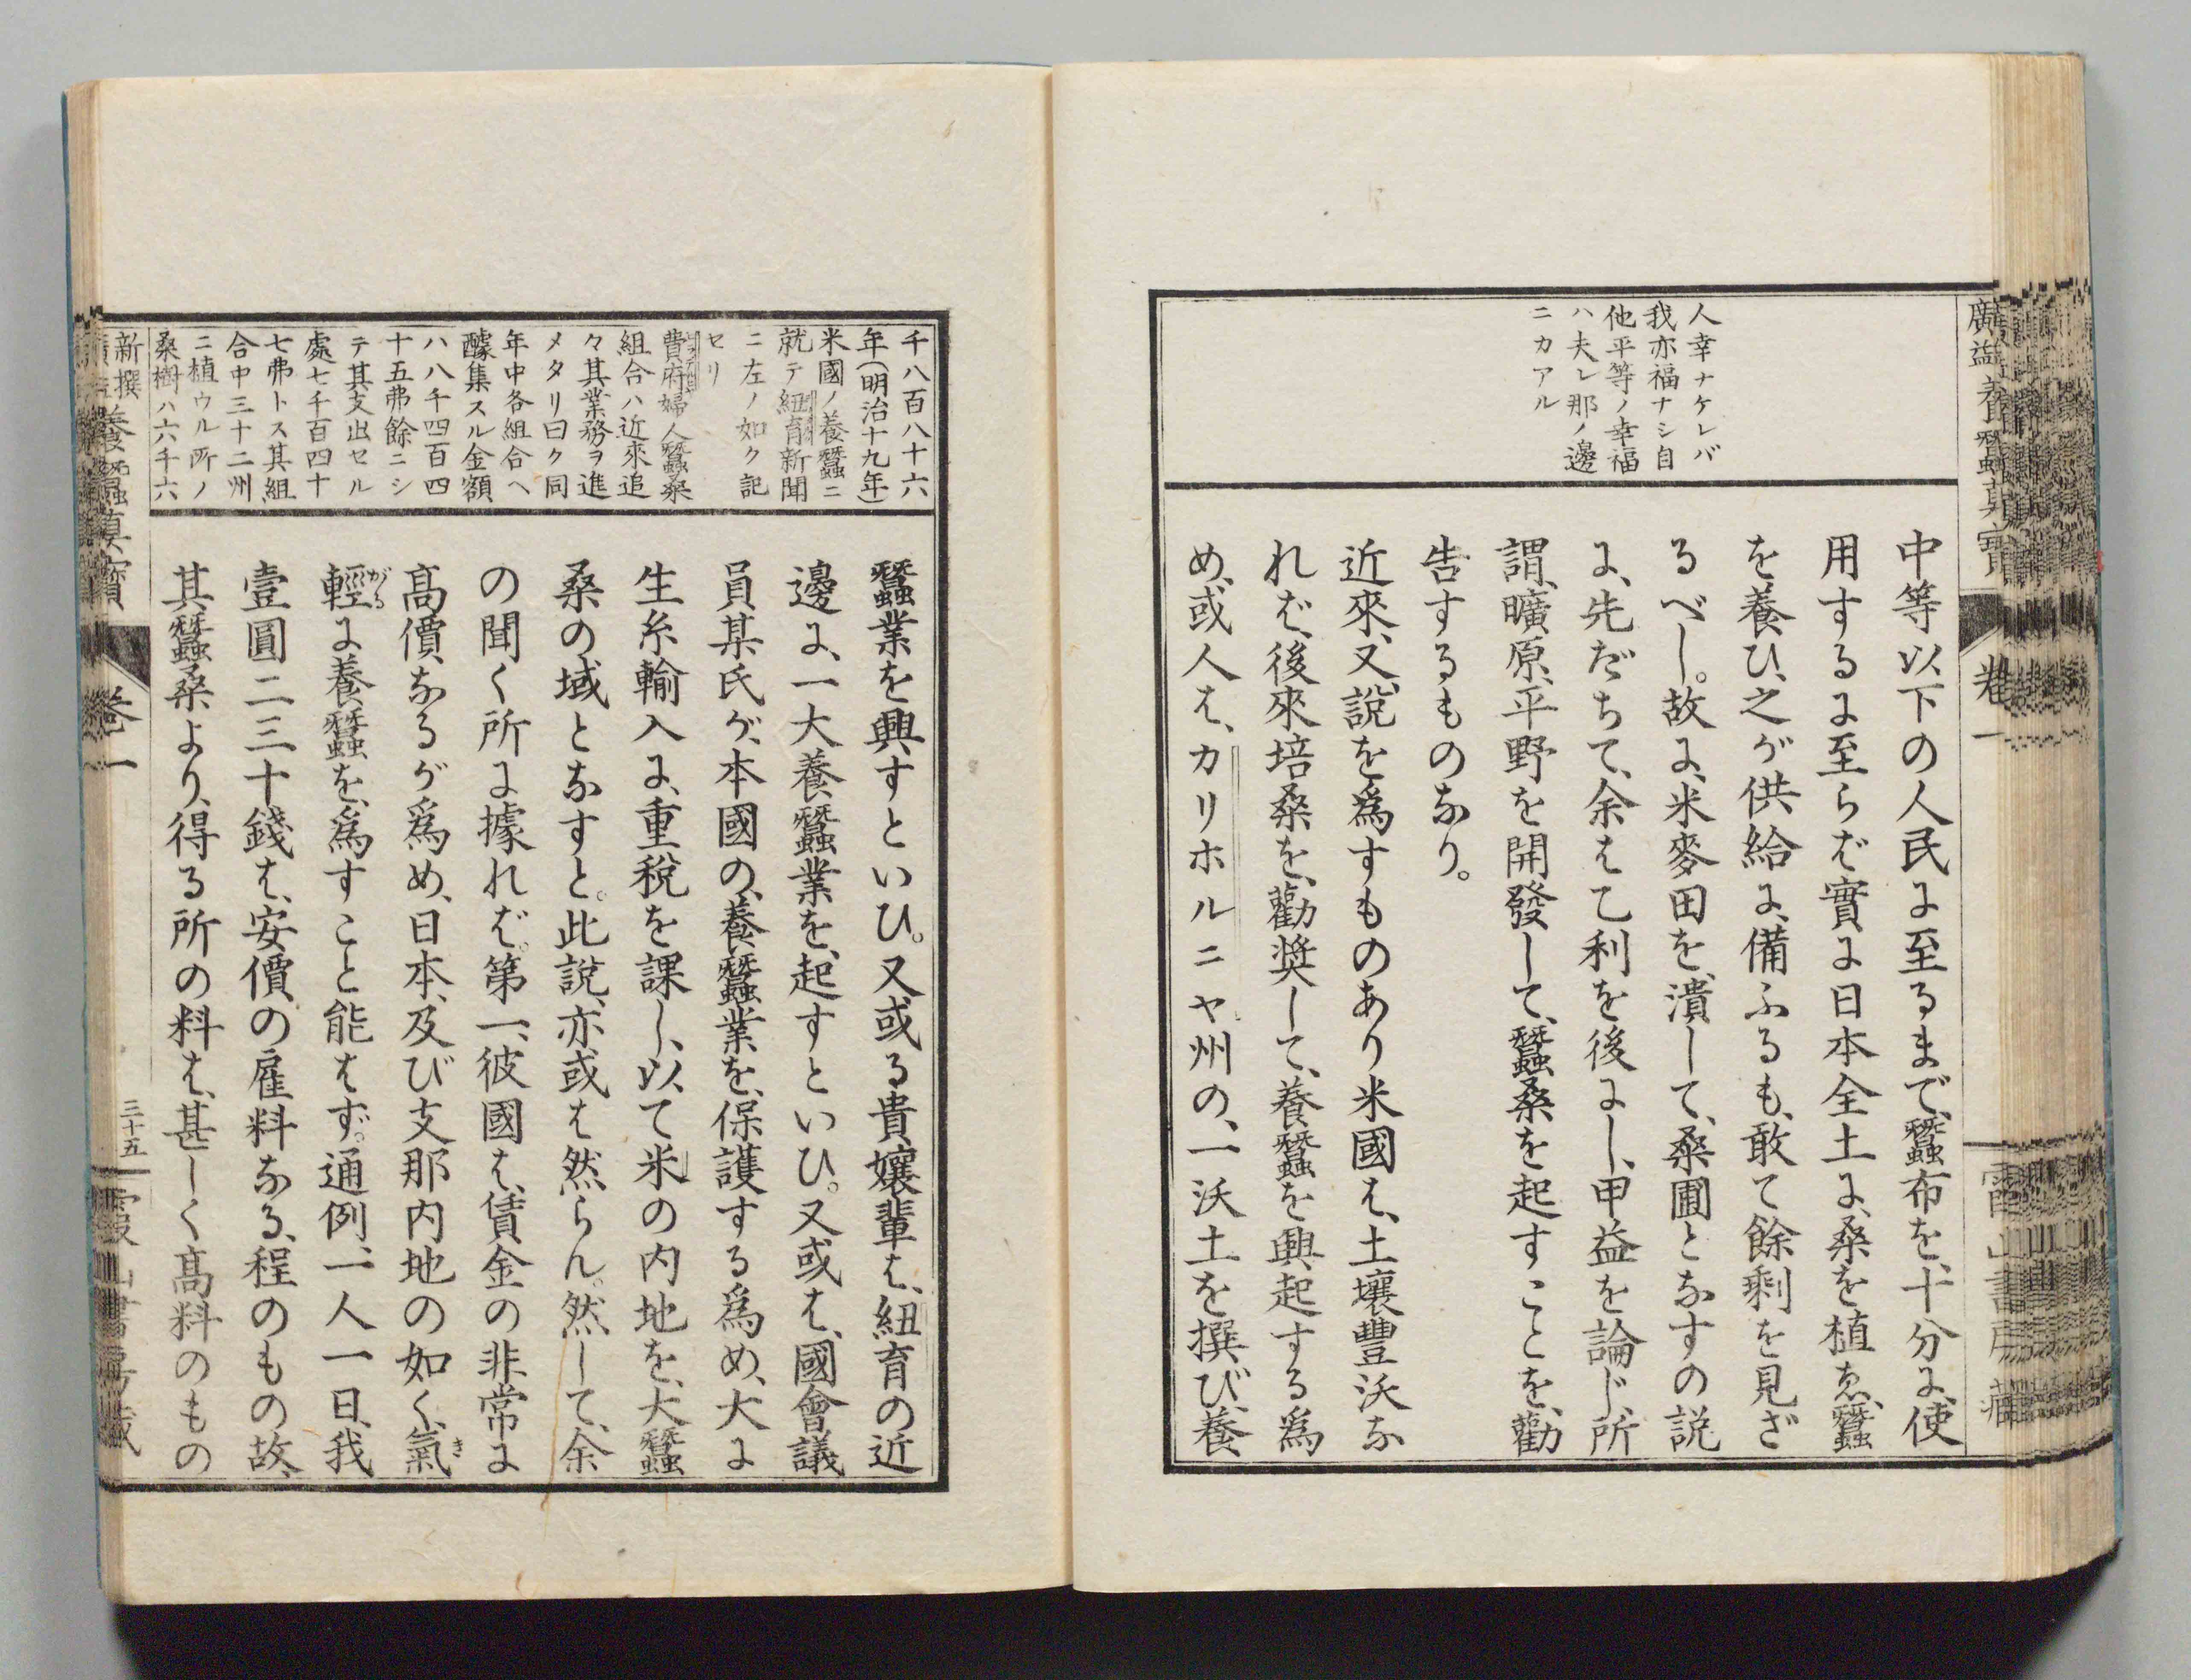 人幸ナケレバ
我亦福ナシ自
他平等ノ幸福
ハ夫レ那ノ邊
ニカアル
中等以下の人民に至るまで、蠶布を、十分に、使
用するに至らば實に日本全土に、桑を植ゑ、蠶
を養ひ、之が供給に、備ふるも、敢て餘剰を見ざ
るべし。故に、米麥田を、潰して、桑圃となすの説
に、先だちて、余は乙利を後にし、甲益を論じ、所
謂、曠原、平野を開發して、蠶桑を起すことを、勸
告するものなり。
近來、又、説を爲すものあり米國は、土壤豐沃な
れば、後來培桑を、勸奨して、養蠶を興起する爲
め、或人は、カリホルニヤ州の、一沃土を撰び、養
千八百八十六
年(明治十九年)
米國ノ養蠶ニ
就テ紐育新聞
ニ左ノ如ク記
セリ
費府婦人蠶桑
組合ハ近來追
々其業務ヲ進
メタリ曰ク同
年中各組合ヘ
醵集スル金額
ハ八千四百四
十五弗餘ニシ
テ其支出セル
處七千百四十
七弗トス其組
合中三十二州
ニ植ウル所ノ
桑樹ハ六千六
蠶業を興すといひ。又或る貴孃輩は、紐育の近
邊に、一大養蠶業を、起すといひ。又或は、國會議
員某氏が、本國の、養蠶業を、保護する爲め、大に
生糸輸入に、重税を課し、以て米の内地を、大蠶
桑の域となすと。此説、亦或は然らん。然して、余
の聞く所に據れば。第一、彼國は、賃金の非常に
高價なるが爲め、日本、及び支那内地の如く、氣
輕に養蠶を、爲すこと能はず。通例、一人一日、我
壹圓二三十錢は、安價の雇料なる、程のもの故、
其蠶桑より、得る所の料は、甚しく高料のもの
新撰
養蠶眞寳
卷一
三十五